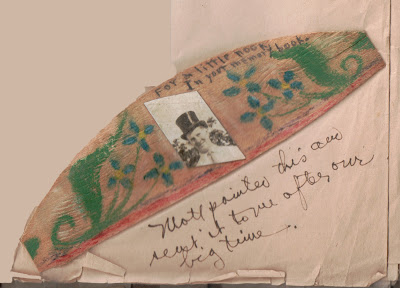 For a little nook
In your memory book.
Mott painted this and
sent it to me after our
big time.